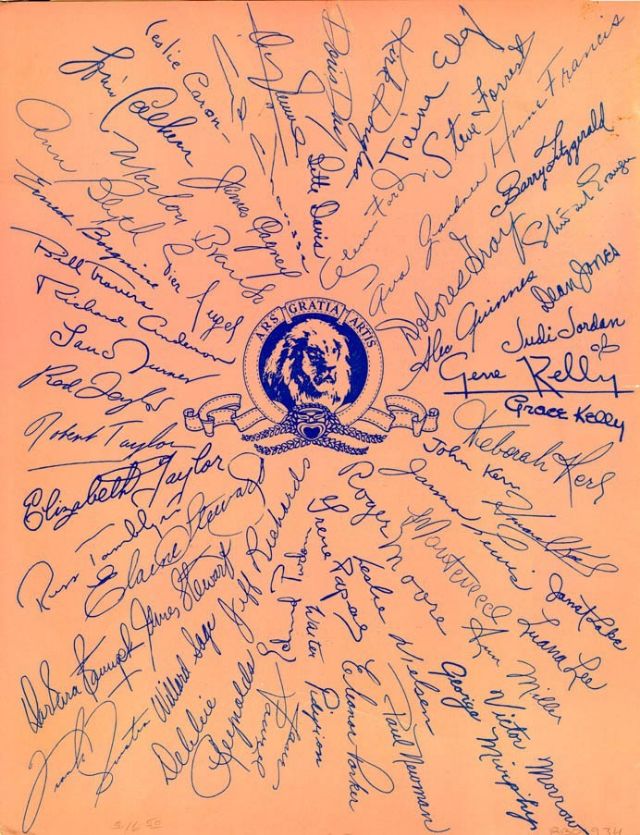 Leslie Caron
Louis Calhern
Ann Blyth
Marlon Brando
James Cagney
Cyd Charisse
Doris Day
Bette Davis
Kirk Douglas
Taina Elg
Glenn Ford
Steve Forrest
Anne Francis
Ava Gardner
Barry Fitzgerald
Dolores Gray
Stewart Granger
Alec Guinness
Dean Jones
Judi Jordan
Gene Kelly
Grace Kelly
Deborah Kerr
John Kerr
Ernest Borgnine
Bill Travers
Pier Angeli
Richard Anderson
Lana Turner
Rod Taylor
Robert Taylor
Elizabeth Taylor
Russ Tamblyn
Elaine Stewart
James Stewart
Barbara Stanwyck
Frank Sinatra
Willard Sage
Jeff Richards
Debbie Reynolds
Walter Pidgeon
Irene Papas
Eleanor Parker
Paul Newman
Leslie Nielsen
Roger Moore
George Murphy
Victor Morrow
Ann Miller
Luana Lee
Janet Lake
ARS GRATIA ARTIS